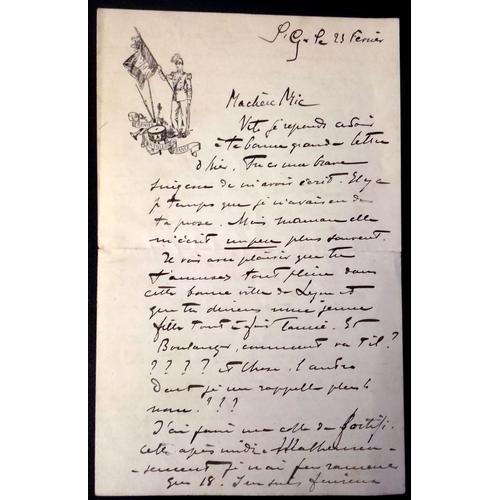 St G. le 23 Février
Ma chère Mic
Vite je réponds ce soir
à ta bonne grande lettre
d'hier. Tu es une brave
de m'avoir écrit. Il y a
temps que je n'avais eu de
ta prose. Mais maman elle
m'écrit un peu plus souvent.
Je vois avec plaisir que tu
t'amuses tout plein dans
cette bonne ville de Lyon et
que tu deviens une jeune
fille tout à fait lancée. Et
Boulanger, comment va-t-il ?
? ? ? ? et chose, l'autre
Dont je me rappelle plus le
nom ? ? ?
J'ai passé une colle de fortifs.
cette après midi. Malheureu-
-sement je n'ai pu ramener
que 18. J'en suis furieux